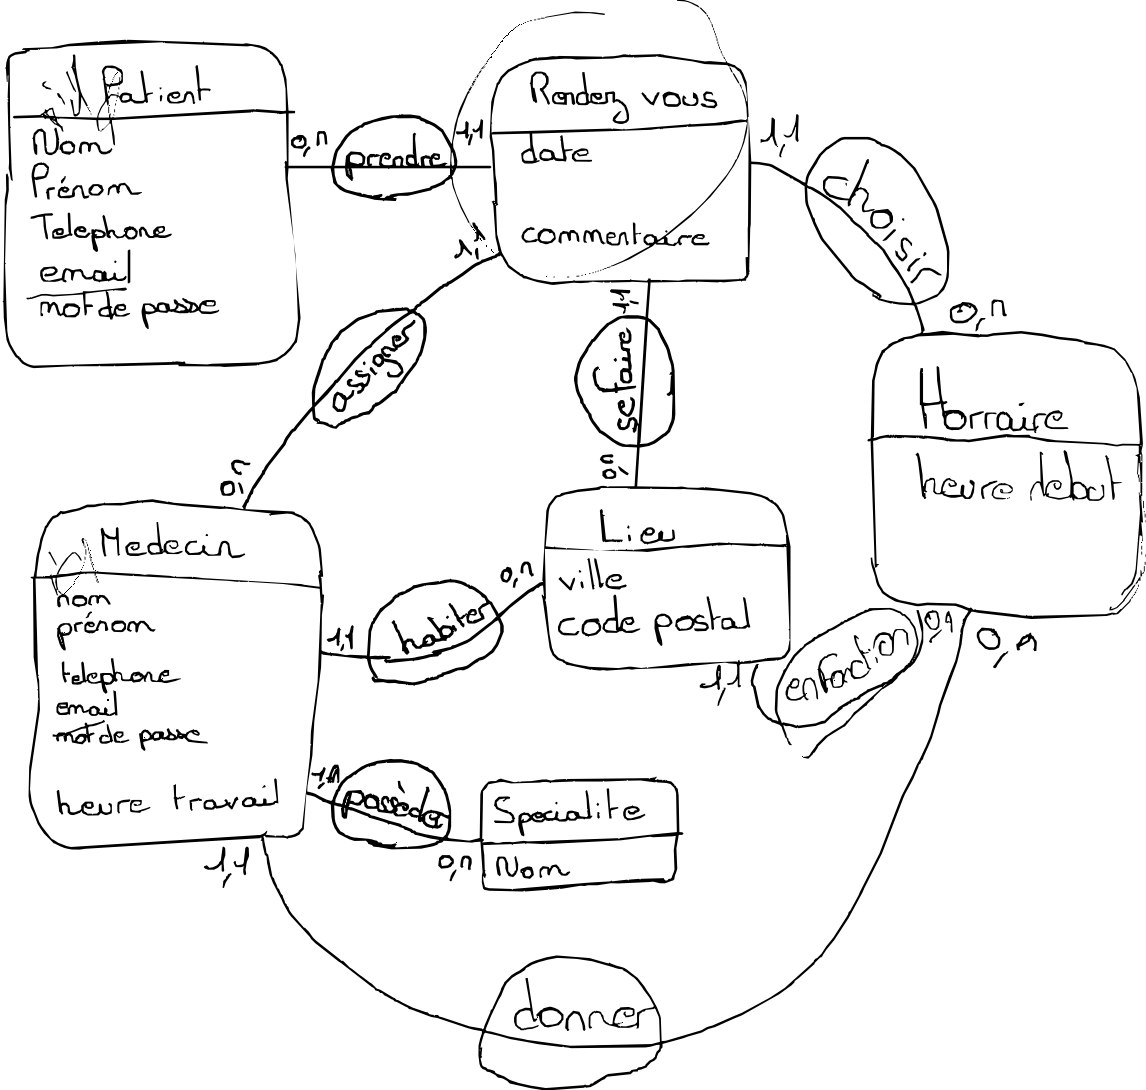 Patient
Nom
Prénom
Telephone
email
mot de passe
0,n
prendre
1,1
Rendez vous
date
commentaire
1,1
choisir
0,n
1,1
assigner
0,n
1,1
se faire
0,n
Horraire
heure debut
Medecin
nom
prénom
telephone
email
mot de passe
heure travail
1,1
habiter
0,n
Lieu
ville
code postal
1,1
enfonction
0,1
0,n
possèder
0,n
Specialite
Nom
1,1
donner